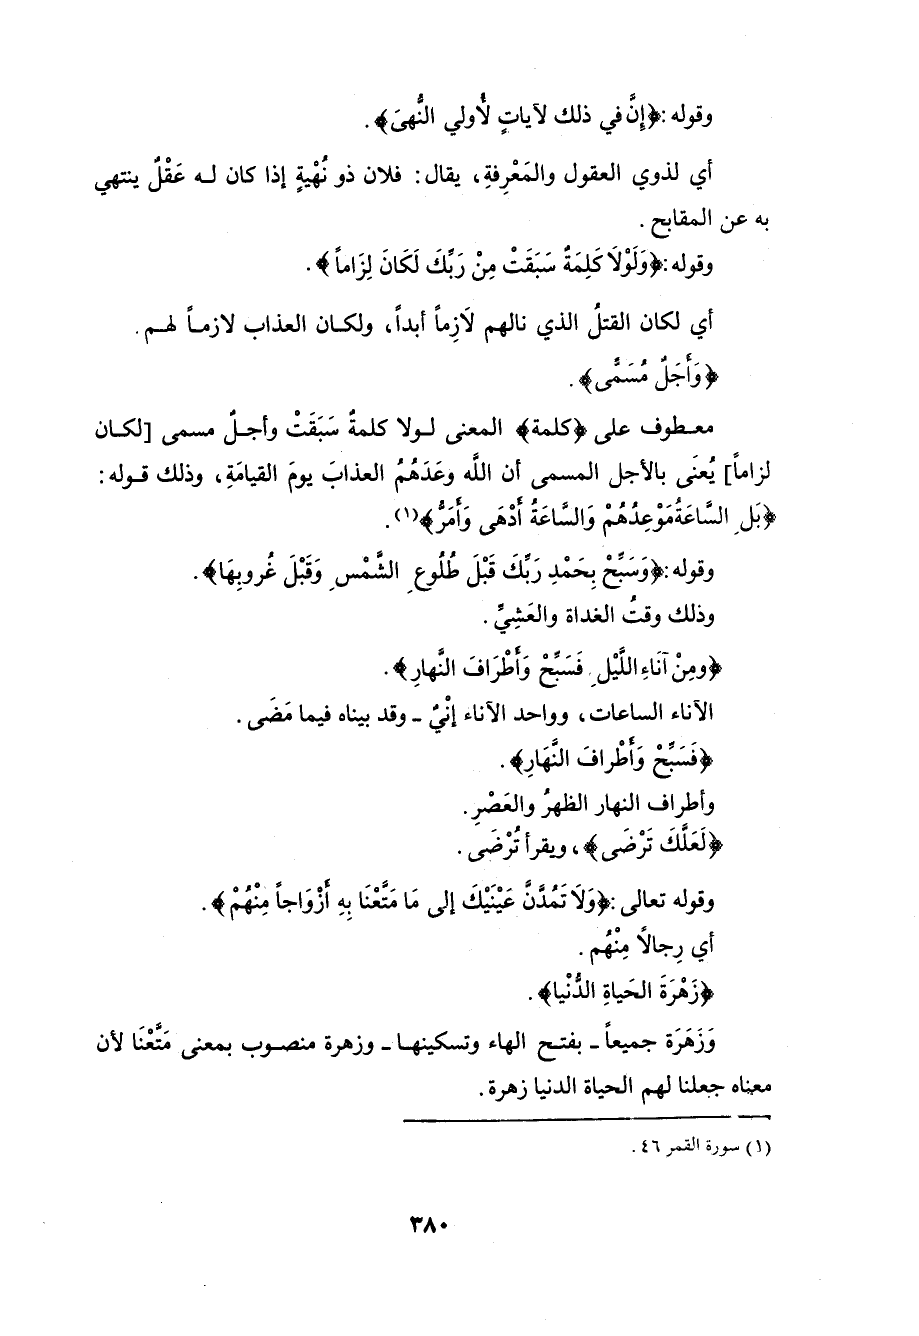 وقوله :﴿إِنَّ في ذلك لآياتٍ لُأولي النُّهىَ﴾ .
أي لذوي العقول والمَعْرِفةِ، يقال : فلان ذو نُهْيةٍ إذا كان لـه عَقْلٌ ينتهي
به عن المقابح .
وقوله :﴿وَلَوْلَا كَلِمَةٌ سَبَقَتْ مِنْ رَبِّكَ لَكَانَ لِزَاماً﴾ .
أي لكان القتلُ الذي نالهم لَازِماً أبداً، ولكـان العذاب لازمـاً لهـم .
﴿وَأَجَلٌ مُسَمًّى﴾ .
معـطوف على ﴿كلمة﴾ المعنى لـولا كلمةٌ سَبَقَتْ وأجـلٌ مسمى [لكـان
لزاماً] يُعنَى بالأجل المسمى أن اللَّه وعَدَهُمُ العذابَ يومَ القيامَةِ، وذلك قـوله :
﴿بَلِ السَّاعَةُ مَوْعِدُهُمْ وَالسَّاعَةُ أَدْهَى وَأَمَرُّ﴾(١) .
وقوله :﴿وَسَبِّحْ بِحَمْدِ رَبِّكَ قَبْلَ طُلُوعِ الشَّمْسِ وَقَبْلَ غُروبِهَا﴾ .
وذلك وقتُ الغداة والعَشِيِّ .
﴿ومِنْ آنَاءِ اللَّيْلِ فَسَبِّحْ وَأَطْرَافَ النَّهارِ﴾ .
الآناء الساعات، وواحد الآناء إنْيٌ ـ وقد بيناه فيما مَضَى .
﴿فَسَبِّحْ وَأَطْرافَ النَّهَارِ﴾ .
وأطراف النهار الظهرُ والعَصْرِ .
﴿لَعَلَّكَ تَرْضَى﴾، ويقرأ تُرْضَى .
وقوله تعالى :﴿وَلَا تَمُدَّنَّ عَيْنَيْكَ إلى مَا مَتَّعْنَا بِهِ أَزْوَاجاً مِنْهُمْ﴾ .
أي رِجالًا مِنْهُم .
﴿زَهْرَةَ الحَياةِ الدُّنْيا﴾ .
وَزَهَرَة جميعاً ـ بفتـح الهاء وتسكينهـا ـ وزهرة منصـوب بمعنى مَتَّعْنَا لأن
معناه جعلنا لهم الحياة الدنيا زهرة .
(١) سورة القمر ٤٦ .
٣٨٠